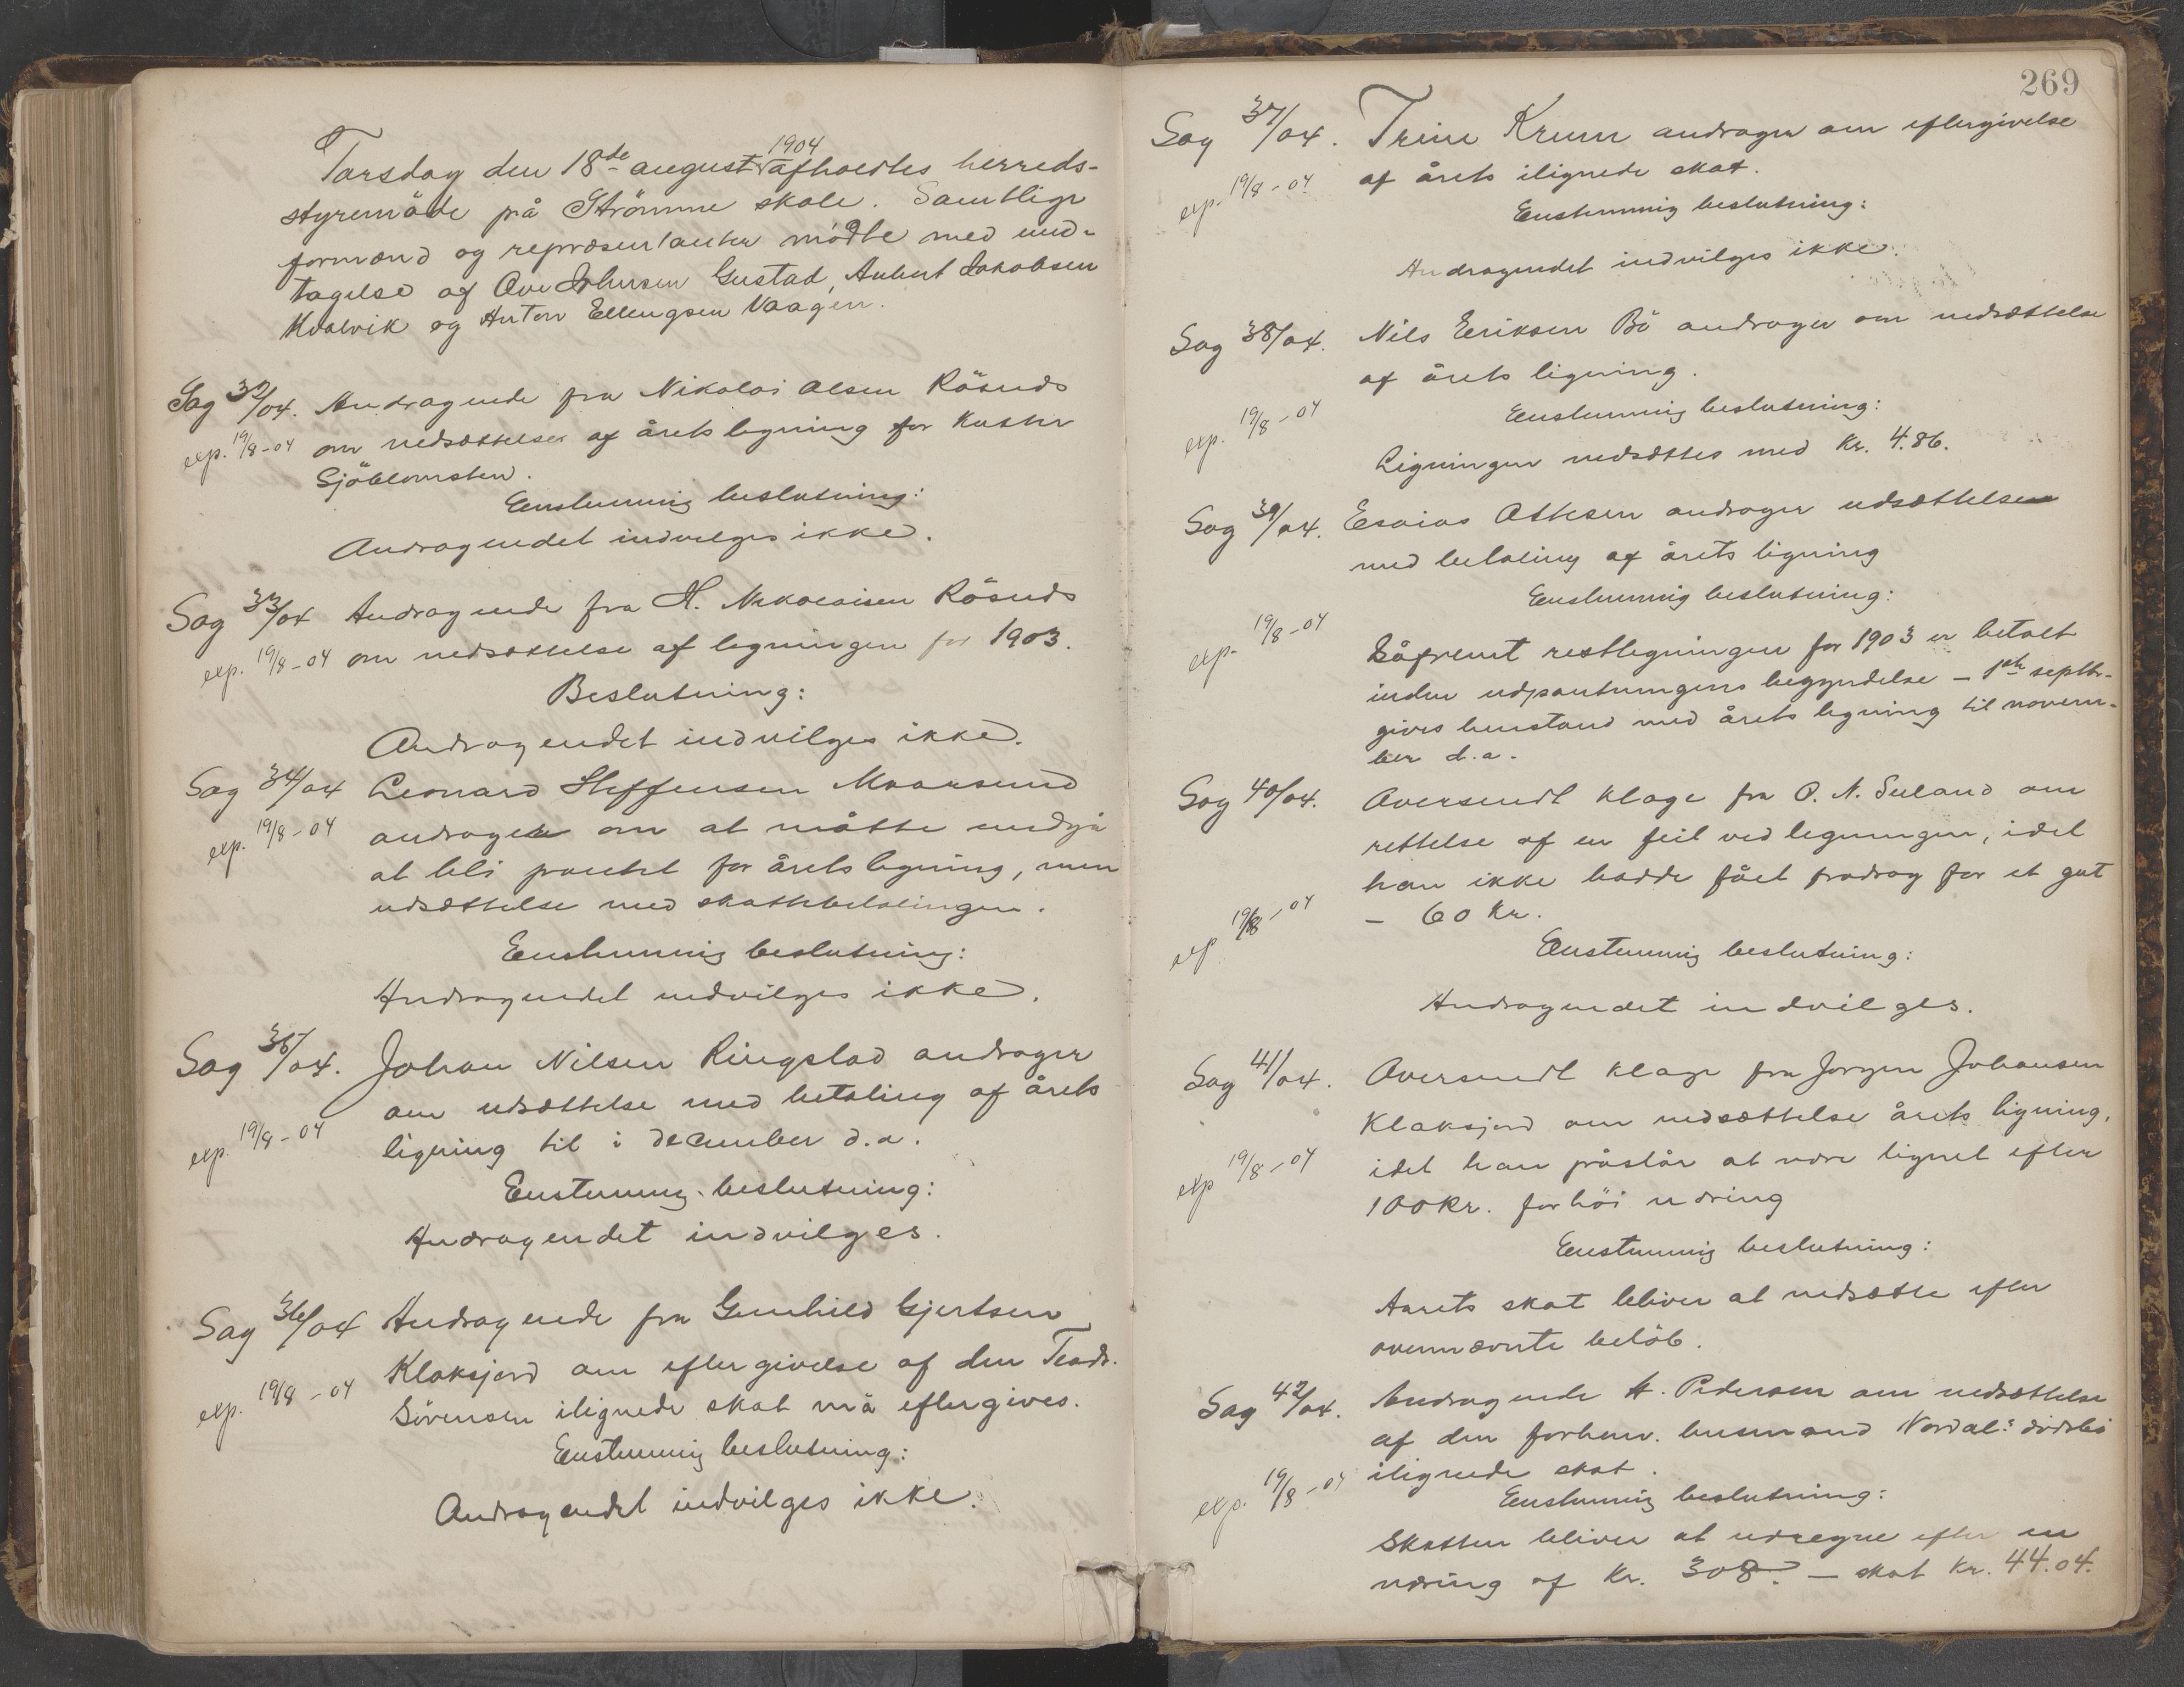 Torsdag den 18de august 1904 afholdtes herreds-
styremöde på Strömme skole. Samtlige
formænd og repræsentanter mödte med und-
tagelse af Ove Johnsen Gustad, Anbert Jakobsen
Kvalvik og Anton Ellingsen Vaagen.
Sag 32/04. Andragende fra Nikolai Olsen Rösnds
exp. 19/8-04 om nedsættelse af årets ligning for Kutter
Sjöblomsten.
Enstemmig beslutning:
Andragendet indvilges ikke.
Sag 33/04 Andragende fra H. Nikolaisen Rösnds
exp. 19/8-04 om nedsættelse af ligningen for 1903.
Beslutning:
Andragendet indvilges ikke.
Sag 34/04 Leonard Steffensen Maarsund
exp. 19/8-04 andrager om at måtte undgå
at bli pantet for årets ligning, men
udsættelse med skattebetalingen.
Enstemmig beslutning:
Andragendet indvilges ikke.
Sag 35/04. Johan Nilsen Ringstad andrager
om udsættelse med betaling af årets
exp. 19/8-04 ligning til i december d.a.
Enstemmig beslutning:
Andragendet indvilges.
Sag 36/04 Andragende fra Gunhild Gjertsen
Klaksjord om eftergivelse af den Teodr.
exp. 19/8-04 Sörensen ilignede skat må eftergives.
Enstemmig beslutning:
Andragendet indvilges ikke.
269
Sag 37/04. Trine Krum andrager om eftergivelse
exp. 19/8-04 af årets ilignede skat.
Enstemmig beslutning:
Andragendet indvilges ikke.
Sag 38/04. Nils Eriksen Bö andrager om nedsættelse
af årets ligning.
exp. 19/8-04 Enstemmig beslutning:
Ligningen nedsættes med Kr. 4.86.
Sag 39/04. Esaias Ottesen andrager udsættelse
med betaling af årets ligning
Enstemmig beslutning:
exp. 19/8-04 Såfremt restligningen for 1903 er betalt
inden udpantningens begyndelse – 1ste septbr.
gives henstand med årets ligning til novem-
ber d.a.
Sag 40/04. Oversendt klage fra O. N. Suland om
rettelse af en feil ved ligningen, idet
han ikke hadde fået fradrag for et gut
exp 19/8-04 – 60 Kr.
Enstemmig beslutning:
Andragendet indvilges.
Sag 41/04. Oversendt klage fra Jørgen Johansen
Klaksjord om nedsættelse årets ligning,
exp 19/8-04 idet han påstår at være lignet efter
100 Kr. for höi næring
Enstemmig beslutning:
Aarets skat bliver at nedsætte efter
ovennævnte belöb.
Sag 42/04. Andragende H. Pedersen om nedsættelse
af den forhenv. husmand Nordal's dödsbo
exp. 19/8-04 ilignede skat.
Enstemmig beslutning:
Skatten bliver at udregne efter en
næring af Kr. 308. – skat Kr. 44.04.